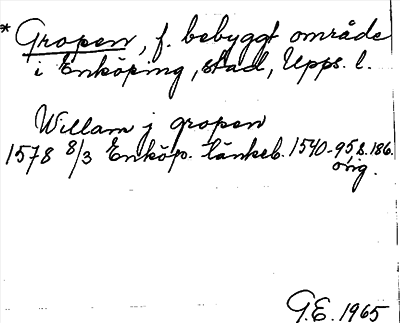 * Gropen, f. bebyggt område
i Enköping, stad, Upps. l.
Willam j gropen
1578 8/3 Enköp. tänkeb. 1540-95, s. 186.
orig.
G.E. 1965